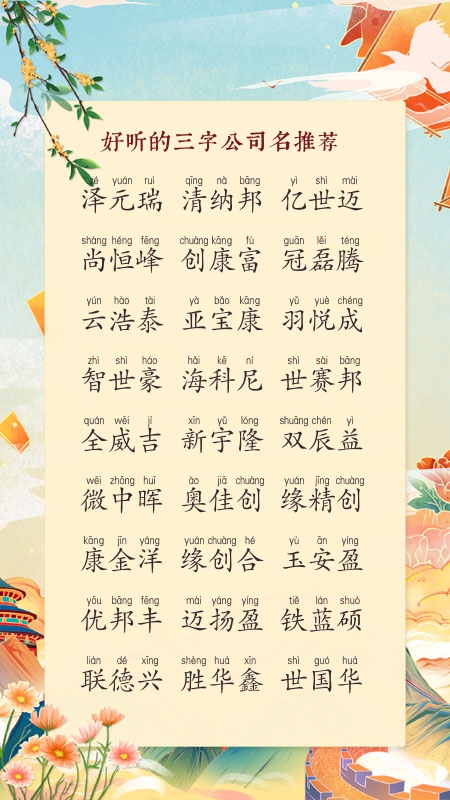 好听的三字公司名推荐
zé yuán ruì qīng nà bāng yì shì mài
泽元瑞 清纳邦 亿世迈
shàng héng fēng chuàng kāng fù guān lěi téng
尚恒峰 创康富 冠磊腾
yún hào tài yà bǎo kāng yǔ yuè chéng
云浩泰 亚宝康 羽悦成
zhì shì háo hǎi kē ní shì sài bāng
智世豪 海科尼 世赛邦
quán wēi jí xīn yǔ lóng shuāng chén yì
全威吉 新宇隆 双辰益
wēi zhōng huī ào jiā chuàng yuán jīng chuàng
微中晖 奥佳创 缘精创
kāng jīn yáng yuán chuàng hé yù ān yíng
康金洋 缘创合 玉安盈
yōu bāng fēng mài yáng yíng tiě lán shuò
优邦丰 迈扬盈 铁蓝硕
lián dé xīng shèng huá xīn shì guó huá
联德兴 胜华鑫 世国华